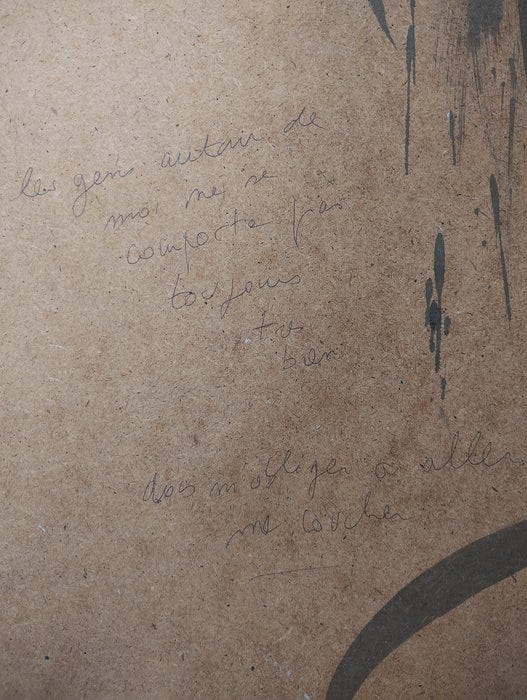 les gens autour de
moi ne se
comporte pas
toujours
très
bien
dois m'obliger à aller
me coucher